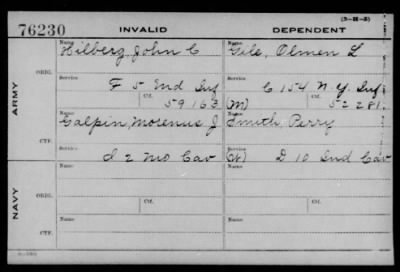 (3-M-3)
76230 INVALID DEPENDENT
Name Name
Hilberg, John C Gile, Olmen L
ORIG. Service Service
F 5 Ind Inf C 154 N.Y. Inf
Ctf. Ctf.
59163 (M) 52281
ARMY
Name Name
Galpin, Morenus J. Smith, Perry
CTF. Service Service
I 2 Mo Cav (W) D 10 Ind Cav
Name Ctf. Name Ctf.
ORIG. Service Service
NAVY
Name Name
CTF. Service Service